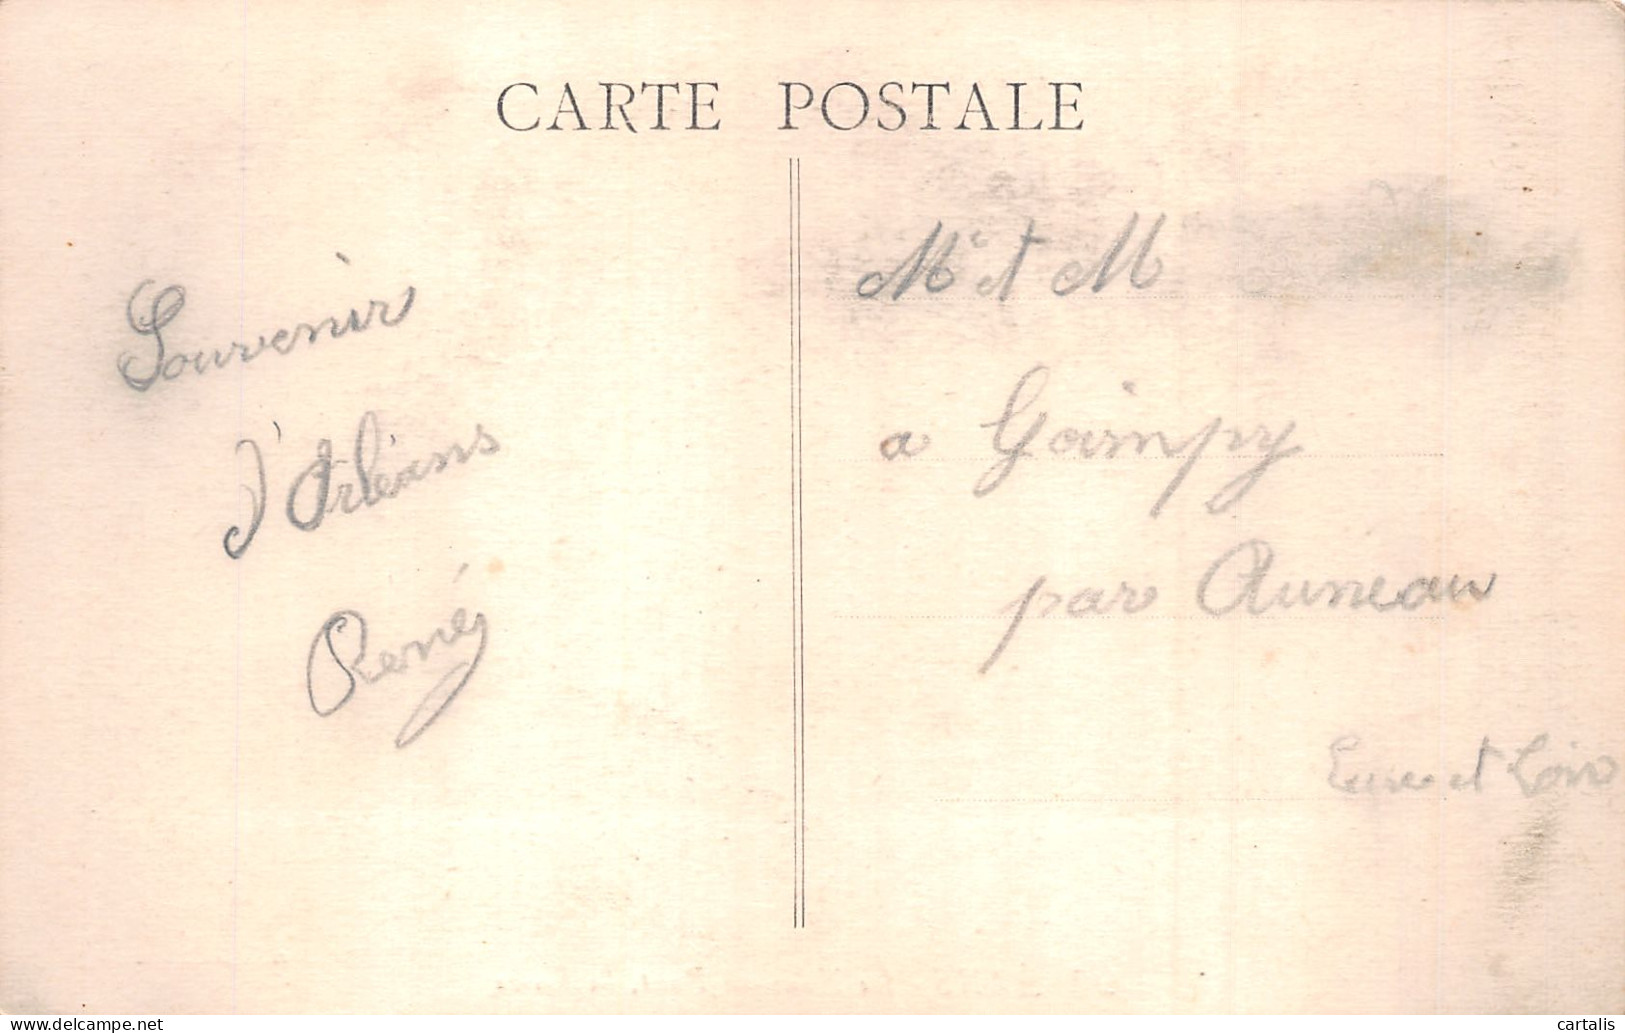 CARTE POSTALE
Souvenir
d'Orléans
René
Mr et M
a Gaimpy
par Auneau
Eure et Loir
cartalis
delcampe.net